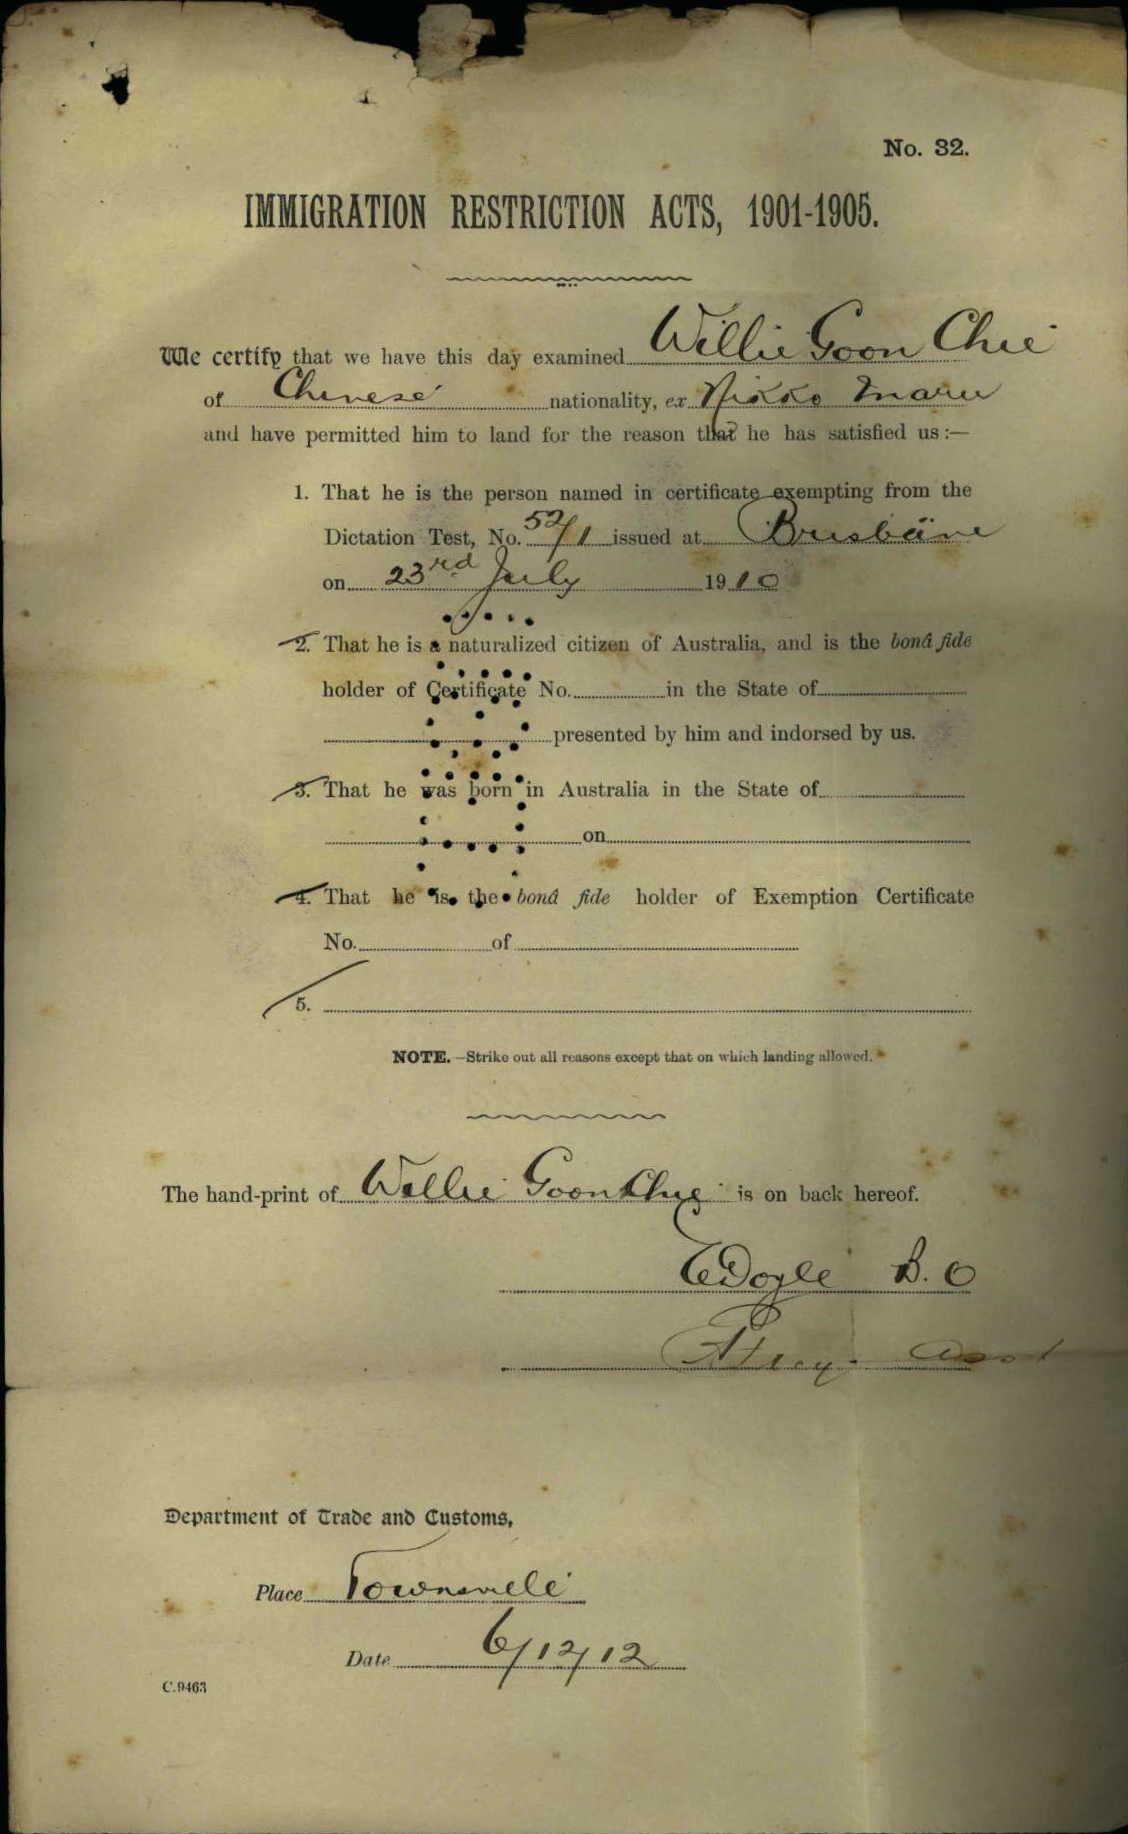 No. 32.
IMMIGRATION RESTRICTION ACTS, 1901-1905.
We certify that we have this day examined Willie Goon Chee
of Chinese nationality, ex Nikko Maru
and have permitted him to land for the reason that he has satisfied us:—
1. That he is the person named in certificate exempting from the
Dictation Test, No. 52/1 issued at Brisbane
on 23rd July 1910
2. That he is a naturalized citizen of Australia, and is the bonâ fide
holder of Certificate No. in the State of
presented by him and indorsed by us.
3. That he was born in Australia in the State of
on
4. That he is the bonâ fide holder of Exemption Certificate
No. of
5.
NOTE.—Strike out all reasons except that on which landing allowed.
The hand-print of Willie Goon Chee is on back hereof.
E Doyle B. O
Asst
Department of Trade and Customs,
Place Townsville
Date 6/12/12
C.9463